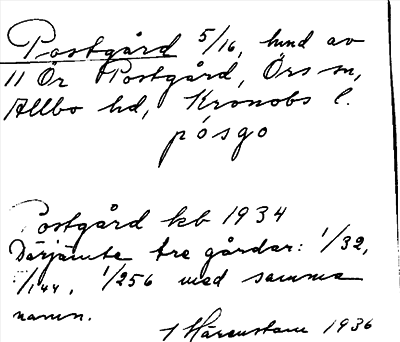 Postgård 5/16, hmd av
11 Ör Postgård, Örs sn,
Allbo hd, Kronobs l.
pósgo
Postgård kb 1934
Därjämte tre gårdar: 1/32,
1/144, 1/256 med samma
namn.
Härenstam 1936